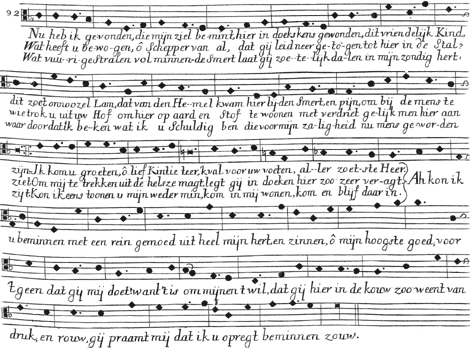 92
Nu heb ik gevonden, die mijn ziel be-mint, hier in doekskens gewonden, dit vriendelijk Kind.
Wat heeft u be-wo-gen, ô Schepper van al, dat gij laid neer ge-to-gen tot hier in de Stal?
Wat vuu-ri-ge stralen vol minnen de Smert laat gij zoe-te-lijk da-len in mijn zondig hert.
dit zoet onnoozel Lam, dat van den He-mel kwam hier bij den Smert, en pijn, om bij de mens te
wie trok u uit uw Hof om hier op aard en Stof te woonen met verdriet ge-lijk men hier aan
waar door dat ik be-ken wat ik u Schuldig ben die voor mijn za-lig-heid nu mens ge-wor-den
zijn. Ik kom u groeten, ô lief Kintie teer, k val voor uw voeten, al-ler zoet-ste Heer,
ziet Om mij te trekken uit de helsze magt legt gij in doeken hier zoo zeer ver-agt, Ah kon ik
zijt Kon ik eens toonen u mijn weder min, kom in mij wonen, kom en blijf daar in.
u beminnen met een rein gemoed uit heel mijn hert, en zinnen, ô mijn hoogste goed, voor
't geen dat gij mij doet: want 't is om mijnen t wil, dat gij hier in de kouw zoo weent van
druk, en rouw, gij praamt mij dat ik u opregt beminnen zouw.